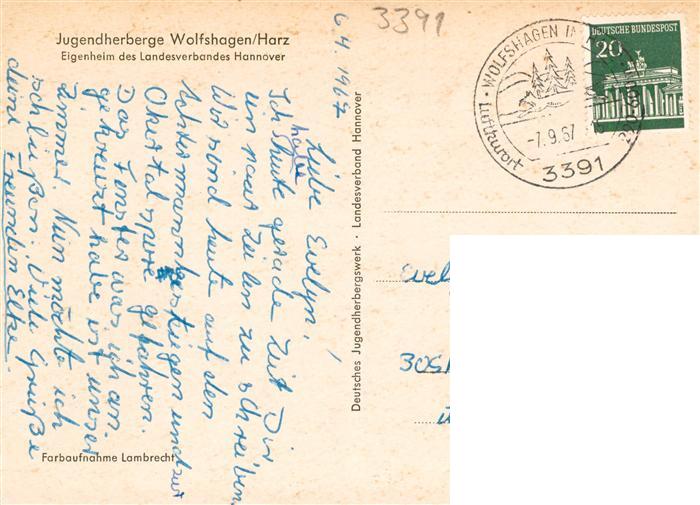 Jugendherberge Wolfshagen/Harz
Eigenheim des Landesverbandes Hannover
6.4.1967
Liebe Evelyn,!
Ich habe heute gerade Zeit Dir
ein paar Zeilen zu schreiben.
Wir sind heute auf den
Achtermann gestiegen und zur
Okertalsperre gefahren.
Das Fenster was ich an-
gekreuzt habe ist unser
Zimmer. Nun möchte ich
schließen. Viele Grüße
deine Freundin Elke.
Farbaufnahme Lambrecht
Deutsches Jugendherbergswerk · Landesverband Hannover
3391
WOLFSHAGEN IM
Luftkurort
-7.9.67
3391
DEUTSCHE BUNDESPOST
20
Evel
305